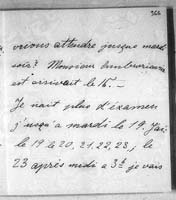 366
vrions attendre jusque mardi
soir? Monsieur
est arrivait le 15. —
Je nait plus d'examen
j'usqu'a mardi le 19. J'ai
le 19 le 20, 21, 22, 23, ; le
23 après midi a 3h je vais